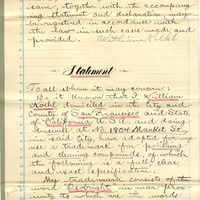 same, together with the accompany-
ing statement and declaration, may
be registered in accordance with
the law in such case made and
provided. William Koehl
Statement
To all whom it may concern:
Be it known that I William
Koehl domiciled in the City and
County of San Francisco and State
of California U.S.A. and doing
business at No 1904 Market St.
in said City, has adopted for my
use a trademark for polishing
and cleaning compounds, of which
the following is a full, clear,
and exact specification.
My trademark consists of the
word in near prox-
imity to which are the words